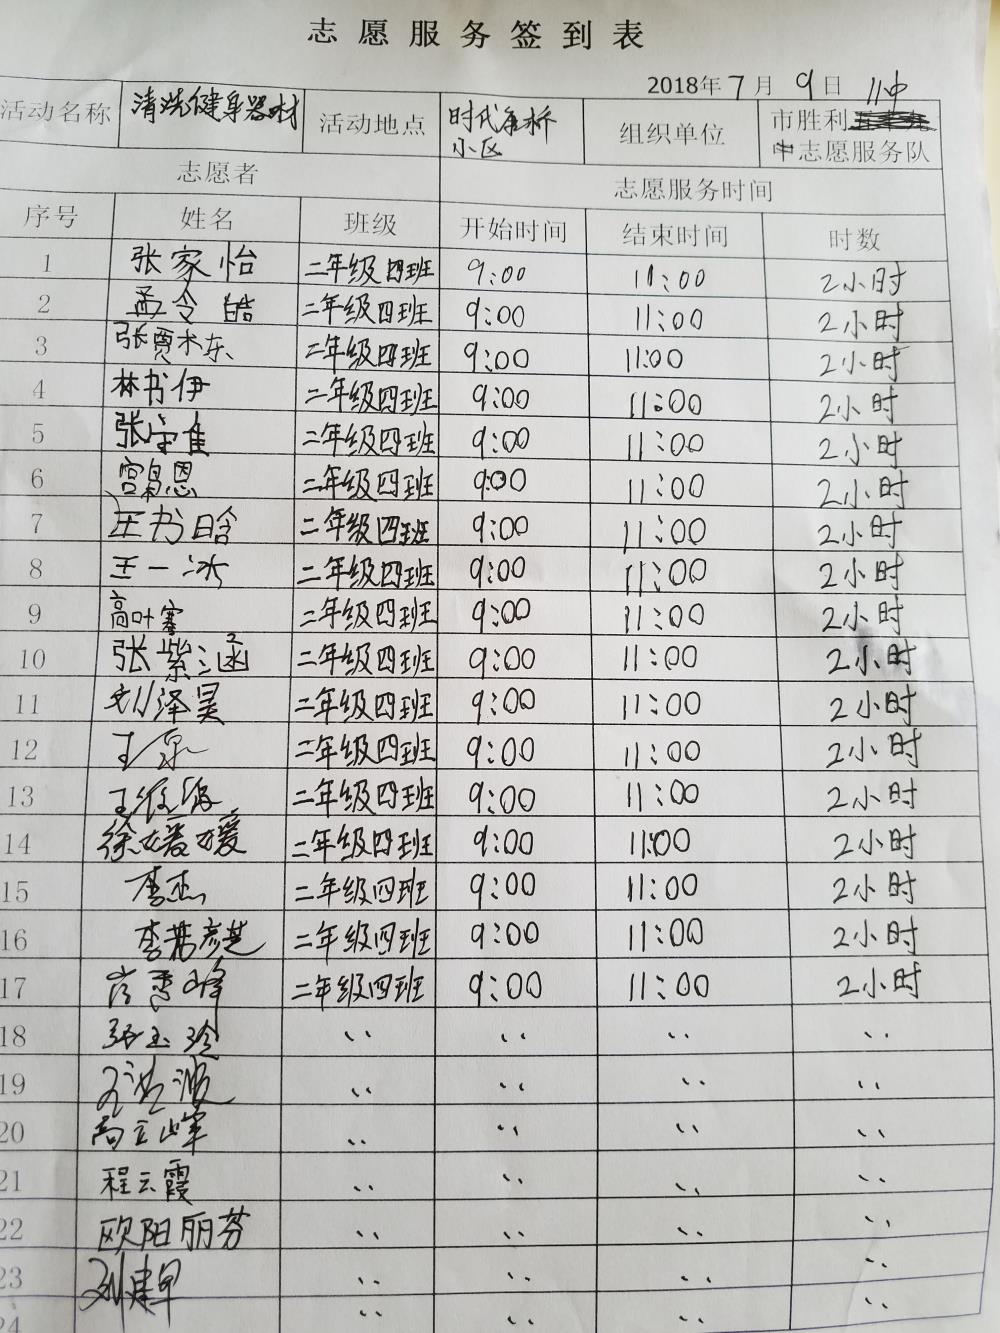 志愿服务签到表
2018年7月9日
活动名称 清洗健身器材 活动地点 时代 小区 组织单位 市胜利 11中 中志愿服务队
志愿者 志愿服务时间
序号 姓名 班级 开始时间 结束时间 时数
1 张家怡 二年级四班 9:00 11:00 2小时
2 孟令皓 二年级四班 9:00 11:00 2小时
3 张贾木东 二年级四班 9:00 11:00 2小时
4 林书伊 二年级四班 9:00 11:00 2小时
5 张 二年级四班 9:00 11:00 2小时
6 宫 恩 二年级四班 9:00 11:00 2小时
7 王书晗 二年级四班 9:00 11:00 2小时
8 王一冰 二年级四班 9:00 11:00 2小时
9 高叶 二年级四班 9:00 11:00 2小时
10 张紫涵 二年级四班 9:00 11:00 2小时
11 刘泽昊 二年级四班 9:00 11:00 2小时
12 王 二年级四班 9:00 11:00 2小时
13 王 二年级四班 9:00 11:00 2小时
14 徐媛媛 二年级四班 9:00 11:00 2小时
15 李杰 二年级四班 9:00 11:00 2小时
16 李 二年级四班 9:00 11:00 2小时
17 二年级四班 9:00 11:00 2小时
18 张玉玲 〃 〃 〃 〃
19 〃 〃 〃 〃
20 高立峰 〃 〃 〃 〃
21 程云霞 〃 〃 〃 〃
22 欧阳丽芬 〃 〃 〃 〃
23 刘建 〃 〃 〃 〃
24 〃 〃 〃 〃